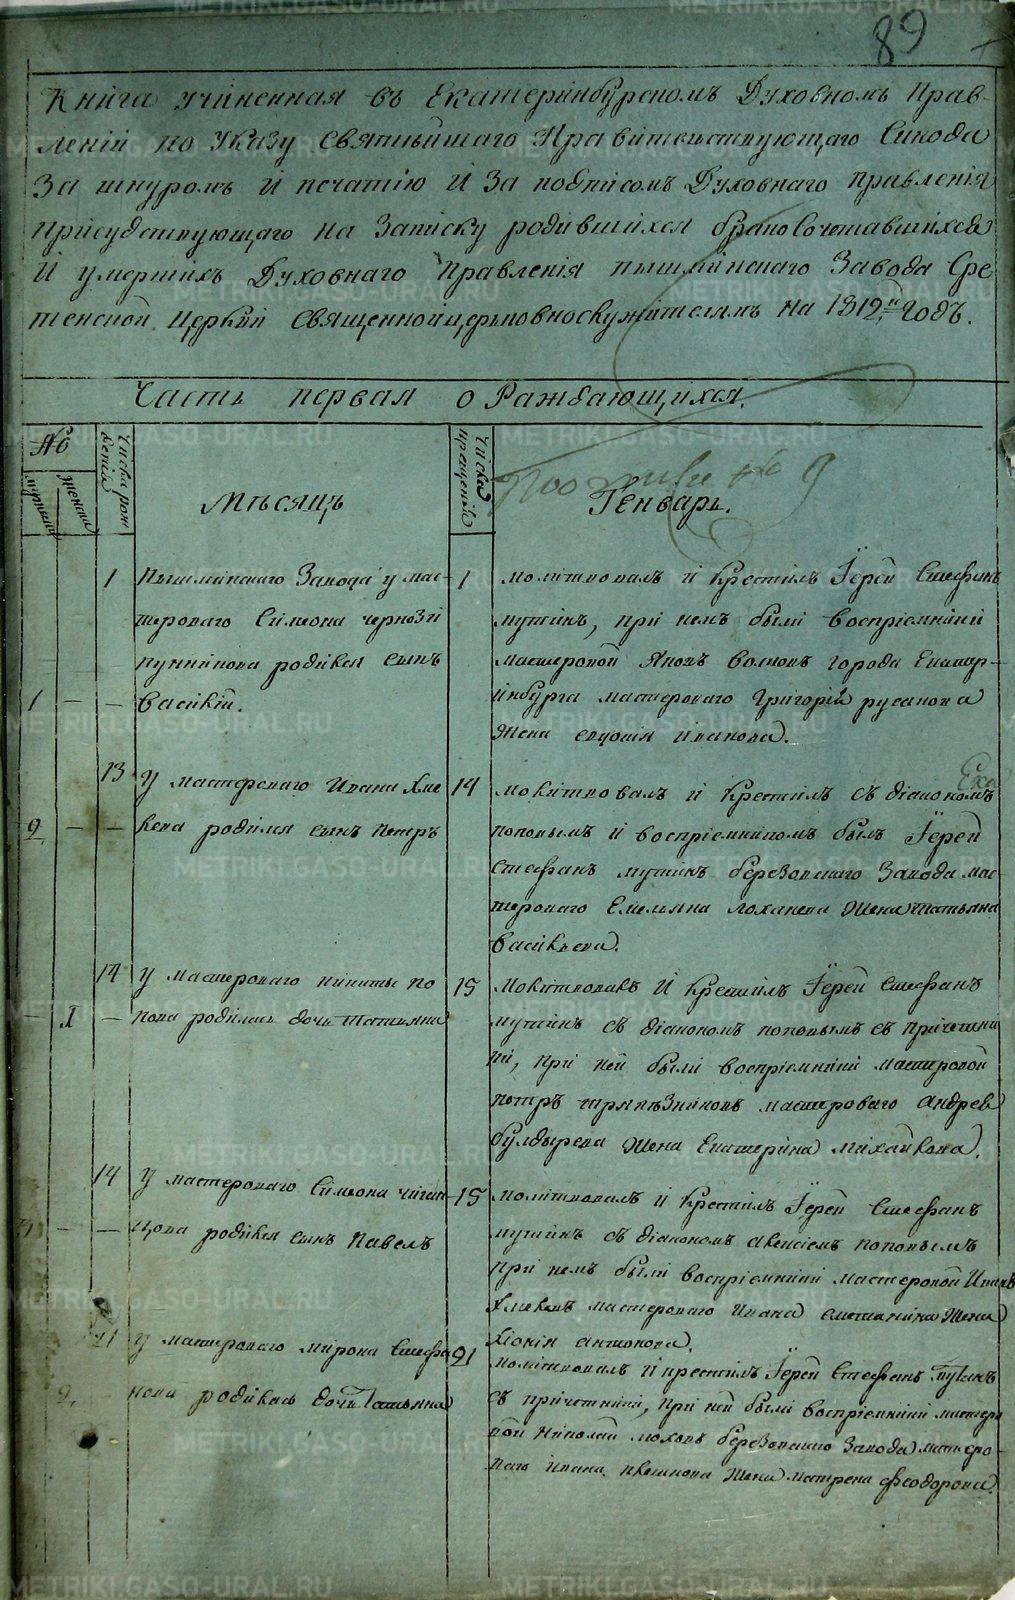 89
Книга учиненная въ Екатеринбурскомъ Духовномъ Прав-
леніи по Указу Святѣйшаго Правительствующаго Синода
За шнуромъ и печатію и За подписомъ Духовнаго правленія
присудствующаго на Записку родившихся бракосочетавшихся
И умершихъ Духовнаго правленія пышминскаго Завода Сре-
тенской Церкви священноицерковнослужителямъ на 1812й годъ.
Часть первая о Раждающихся.
№
мужеска
женска
Числа рож
денія
Мѣсяцъ
Числа
крещенія
Генварь.
1 Пышминскаго Завода у мас-
тероваго Симеона
родился сынъ
1 — — Василій.
1 молитвовалъ и Крестилъ Іерей Стефанъ
путинъ, при немъ были воспріемники
мастеровой Яковъ волковъ города Екатер-
инбурга мастероваго Григорія русанова
жена евдокія иванова.
13 У мастероваго Ивана Хме
2 — — лева родился сынъ петръ
14 молитвовалъ и Крестилъ съ діакономъ
поповымъ и воспріемникомъ былъ Іерей
Стефанъ путинъ березовскаго Завода мас-
тероваго Емельяна лоханева Жена татьяна
васильева.
14 У мастероваго никиты по
— 1 — пова родилась дочь татьяна
15 Молитвовалъ И Крестилъ Іерей Стефанъ
путинъ съ діакономъ поповымъ съ причетни
ки, при ней были воспріемники мастеровой
петръ трапѣзниковъ мастероваго андрея
булдырева жена Екатерина михайлова.
14 У мастероваго Симеона чиган-
3 — — цова родился сынъ Павелъ
15 молитвовалъ и Крестилъ Іерей Стефанъ
путинъ съ діакономъ алексіемъ поповымъ
при немъ были воспріемники мастеровой Иванъ
Хмелевъ мастероваго Ивана сметанина Жена
хіонія антонова.
21 У мастероваго мирона Стефа
2 — нова родилась дочь Татьяна
21 молитвовалъ и крестилъ Іерей Стефанъ Путинъ
съ причетники, при ней были воспріемники мастеро
вой николай моховъ березовскаго Завода мастеро-
ваго ивана жена матрена феодорова.
METRIKI.GASO-URAL.RU